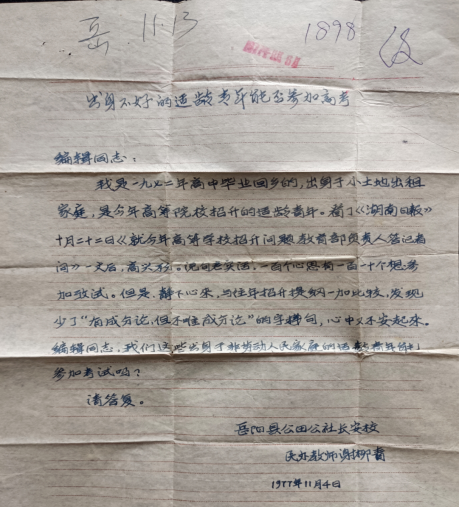 岳 11.13 1898
出身不好的适龄青年能否参加高考
编辑同志:
我是一九七二年高中毕业回乡的,出身于小土地出租
家庭,是今年高等院校招升的适龄青年。看了《湖南日报》
十月二十二日《就今年高等学校招升问题教育部负责人答记者
问》一文后,高兴极。说句老实话,一百个心思有一百一十个想参
加考试。但是,静下心来,与往年招升提纲一加比较,发现
少了“有成分论,但不唯成分论”的字样句,心中又不安起来。
编辑同志,我们这些出身于非劳动人民家庭的适龄青年能
参加考试吗?
请答复。
岳阳县公田公社长安校
民办教师谢柳青
1977年11月4日